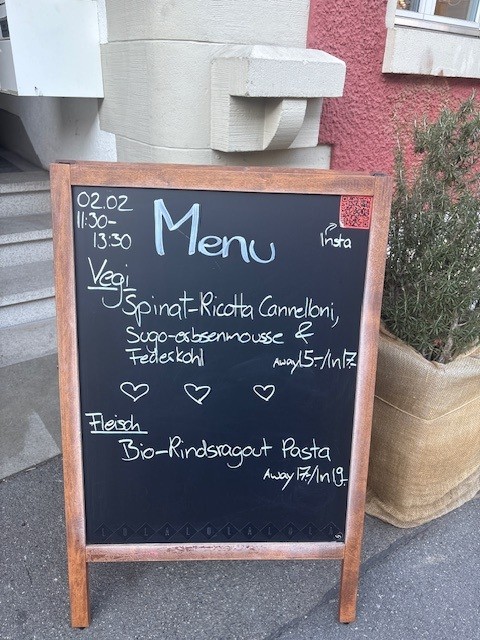 02.02
11:30-
13:30
Menu
Insta
Vegi
Spinat-Ricotta Cannelloni,
Sugo-erbsenmousse &
Federkohl
Away 15.-/In 17.-
Fleisch
Bio-Rindsragout Pasta
Away 17.-/In 19.-